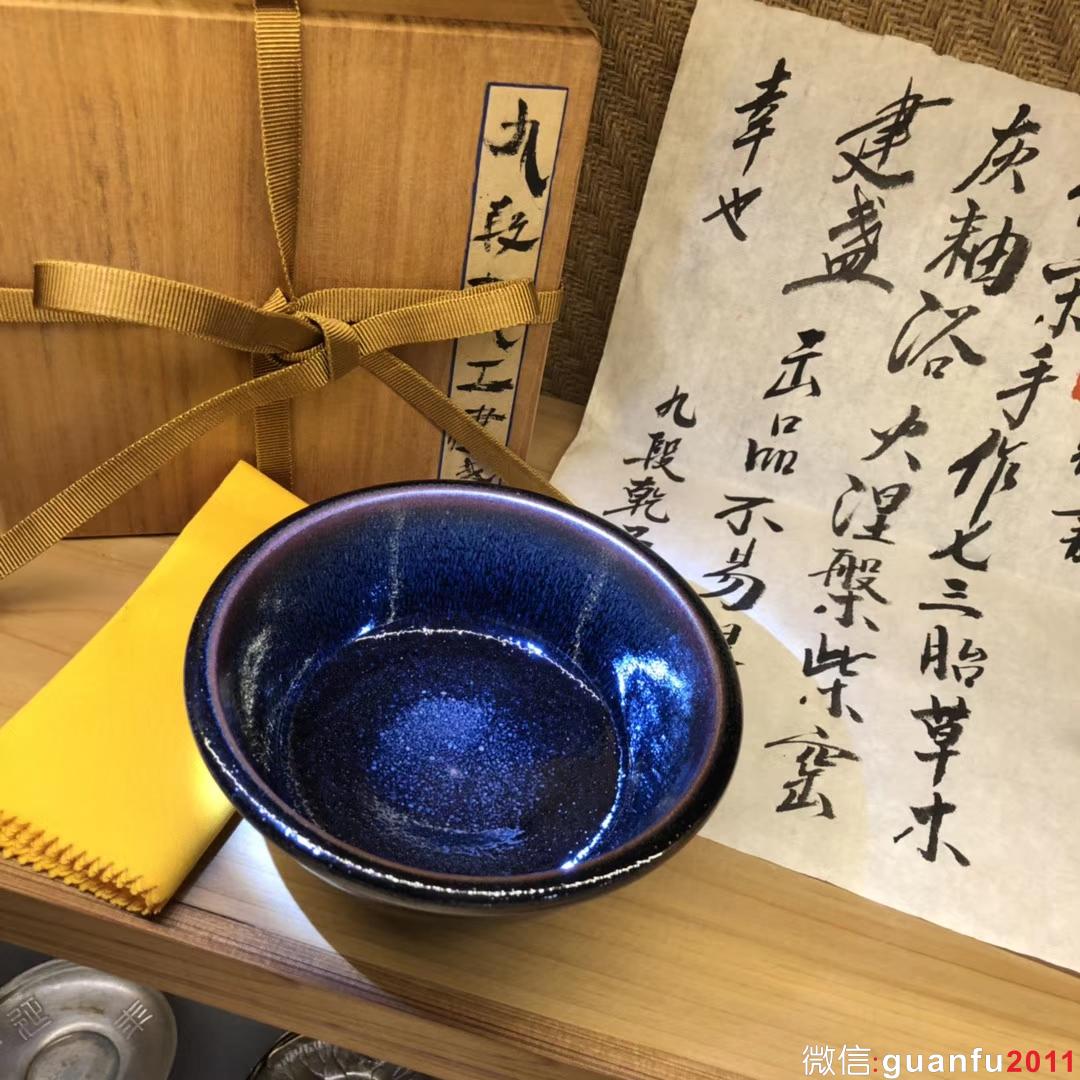 九段
工
手作七三胎草木
灰釉浴火涅槃柴窑
建盏出品不易
幸也
九段乾
微信:guanfu2011